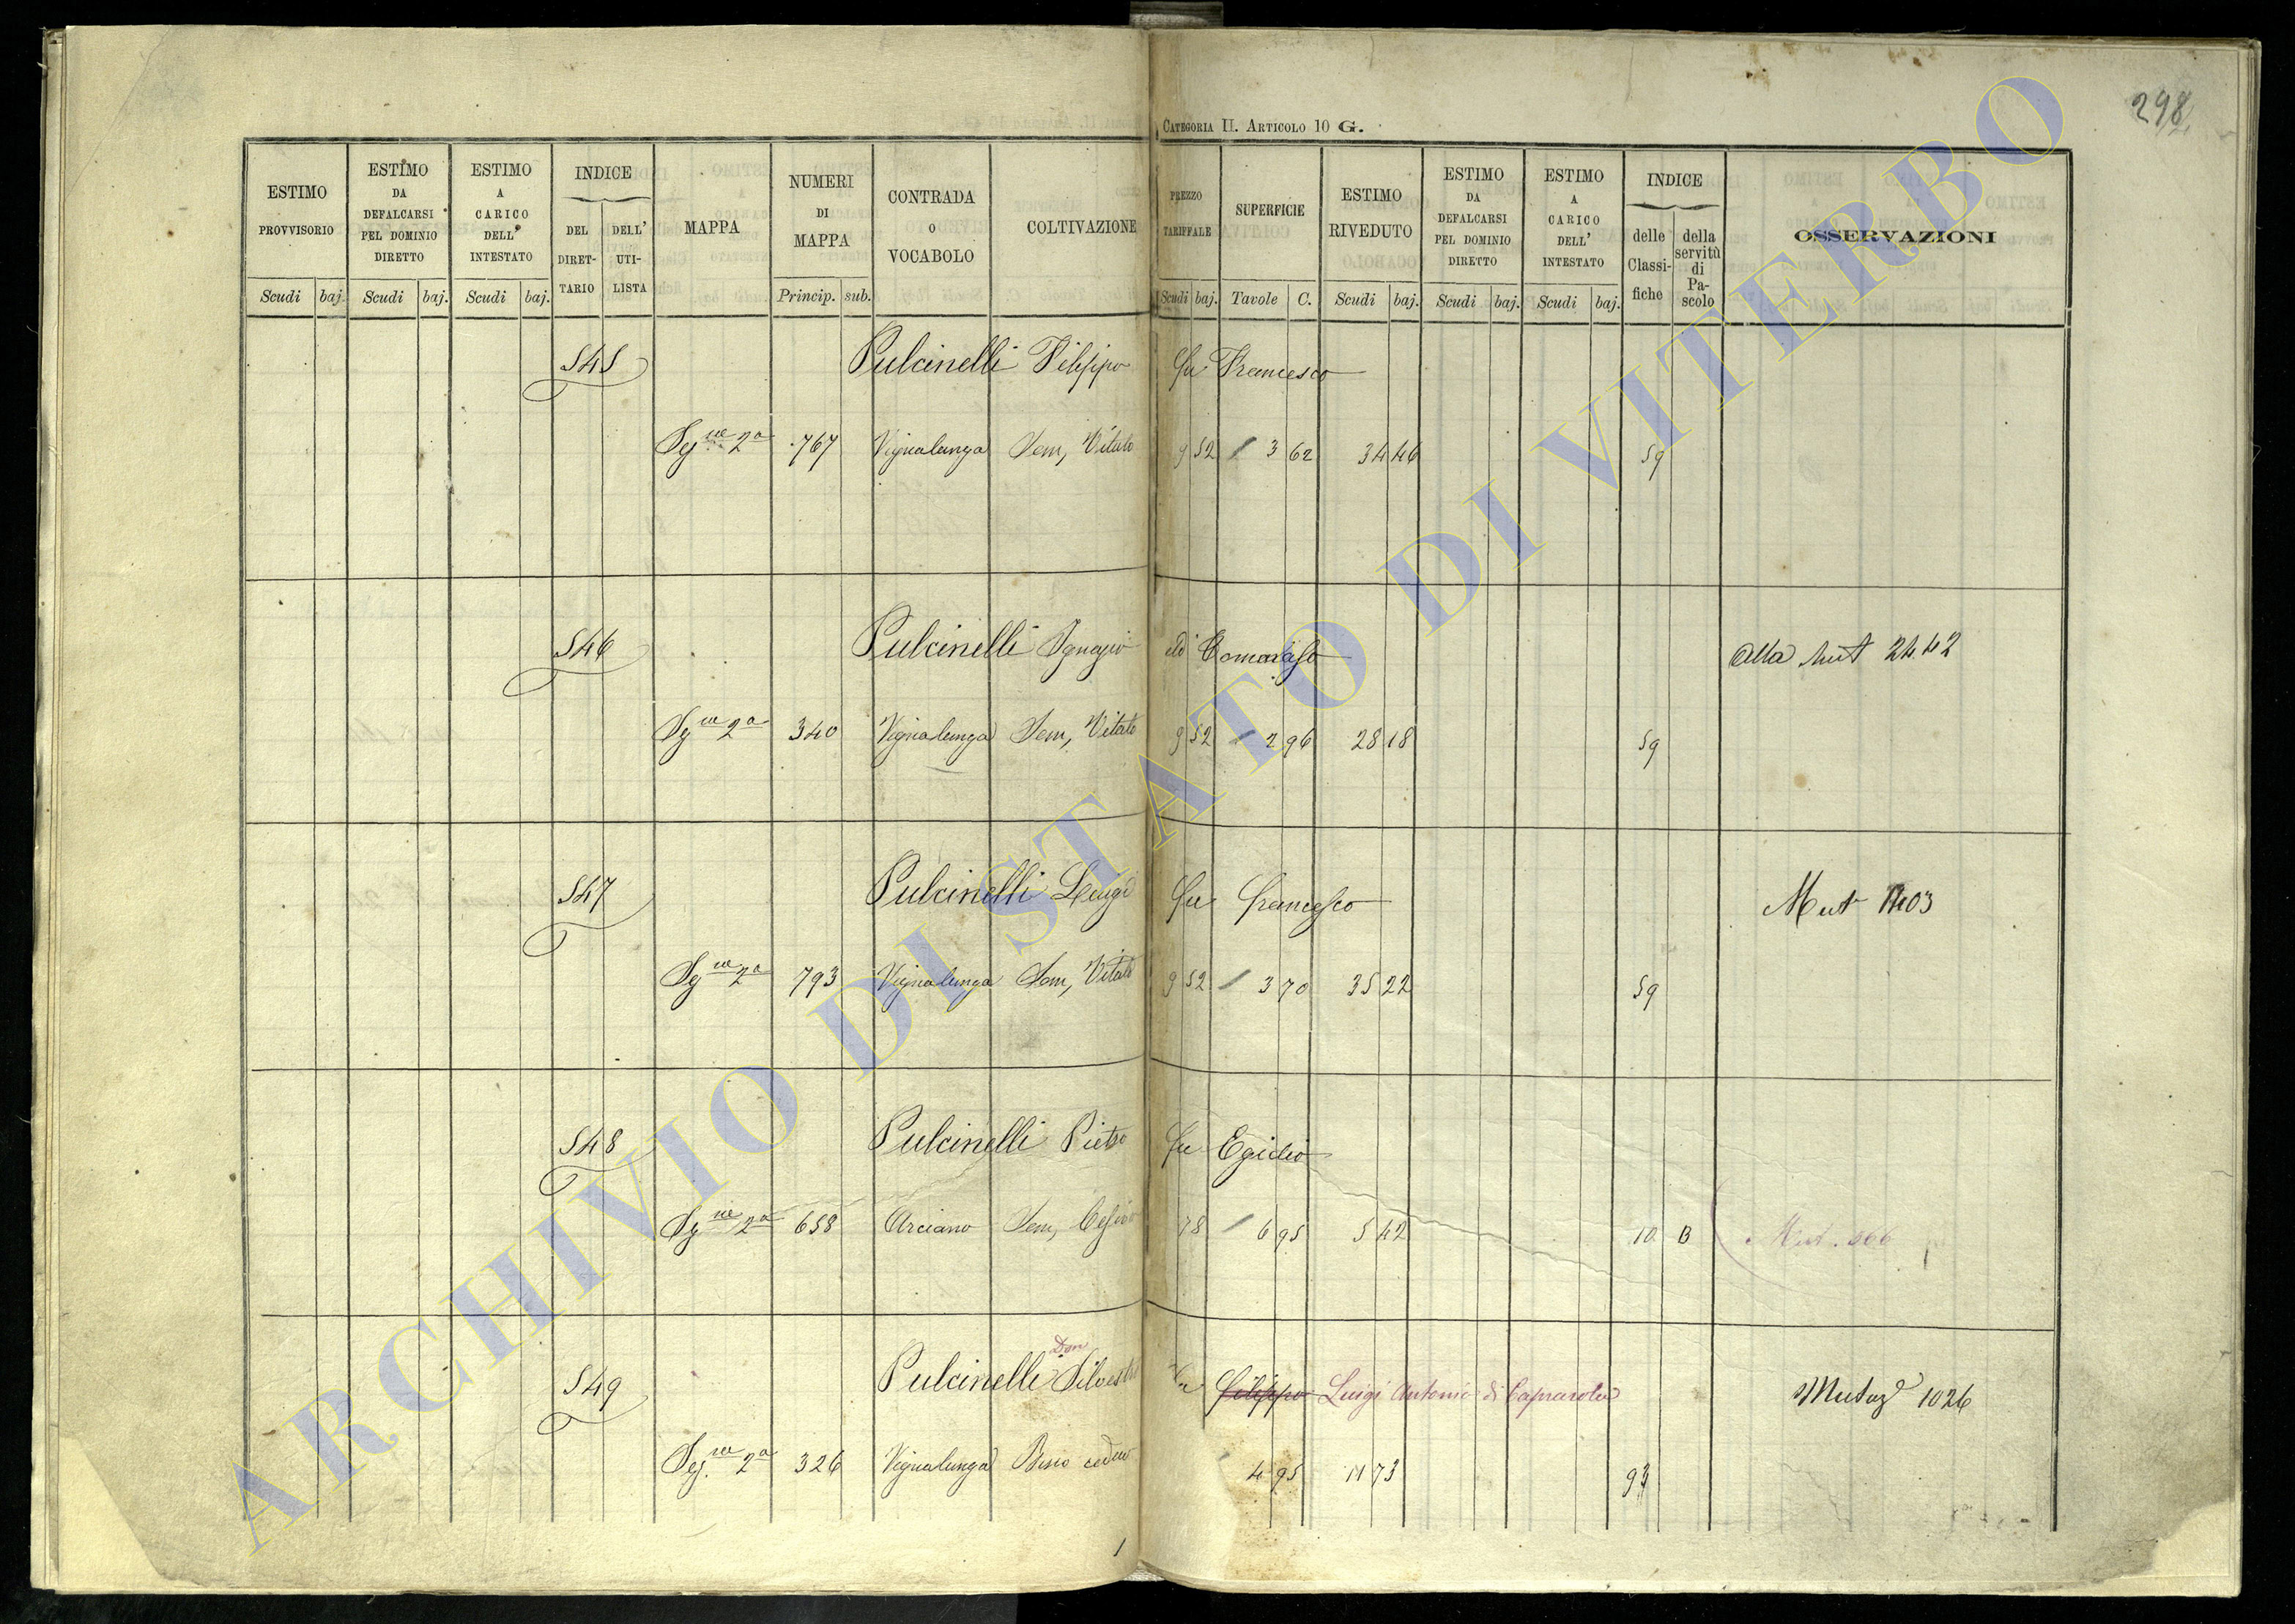 298
CATEGORIA II. ARTICOLO 10 G.
ESTIMO PROVVISORIO
ESTIMO DA DEFALCARSI PEL DOMINIO DIRETTO
ESTIMO A CARICO DELL' INTESTATO
INDICE
DEL DIRET-TARIO
DELL' UTI-LISTA
MAPPA
NUMERI DI MAPPA
CONTRADA O VOCABOLO
COLTIVAZIONE
PREZZO TARIFFALE
SUPERFICIE
ESTIMO RIVEDUTO
ESTIMO DA DEFALCARSI PEL DOMINIO DIRETTO
ESTIMO A CARICO DELL' INTESTATO
INDICE
delle Classi-fiche
della servitù di Pa-scolo
OSSERVAZIONI
Scudi baj. Scudi baj. Scudi baj. Princip. sub. Scudi baj. Tavole C. Scudi baj. Scudi baj. Scudi baj.
545 Pulcinelli Filippo fu Francesco
Seg.ne 2a 767 Vignalunga Sem, Vitato 9 52 3 62 34 46 59
546 Pulcinelli Ignazio di Tomasso Alla Mut 2442
Seg.ne 2a 340 Vignalunga Sem, Vitato 9 52 2 96 28 18 59
547 Pulcinelli Luigi fu Francesco Mut 1403
Seg.ne 2a 793 Vignalunga Sem, Vitato 9 52 3 70 35 22 59
548 Pulcinelli Pietro fu Egidio
Seg.ne 2a 658 Arciano Sem, 78 6 95 5 42 10 B Mut. 666
Don
549 Pulcinelli Silvestro fu Filippo Luigi Antonio di Caprarola Mutaz.e 1026
Seg.ne 2a 326 Vignalunga Bosco ceduo 4 95 11 73 93
1
ARCHIVIO DI STATO DI VITERBO